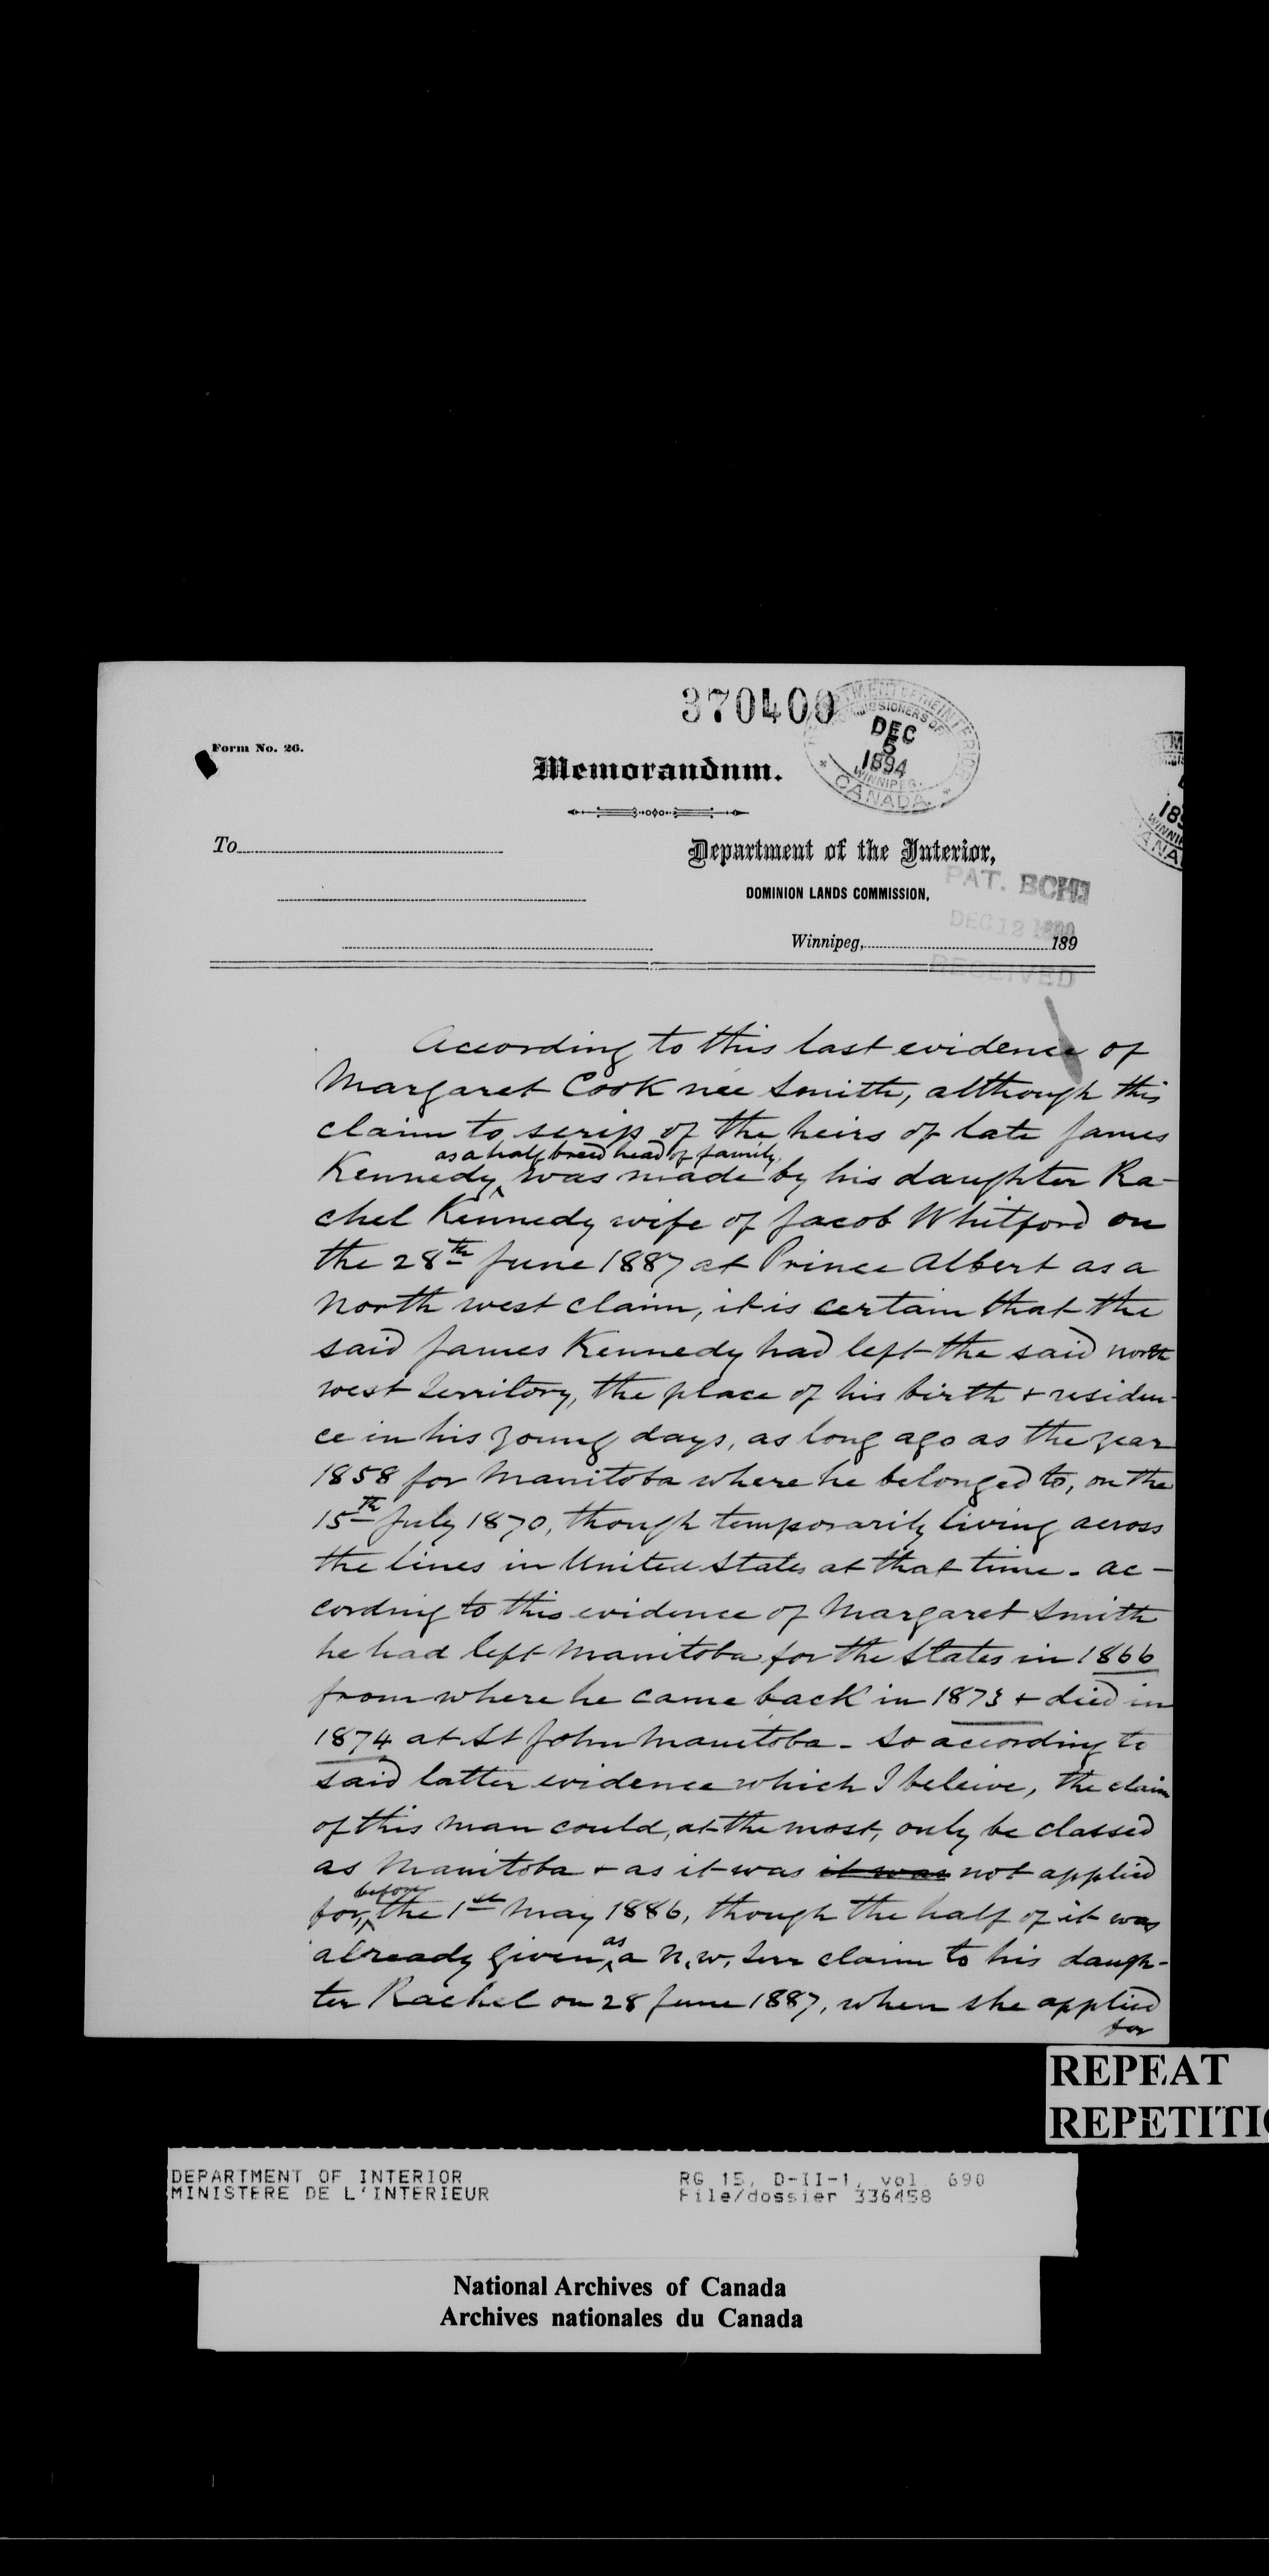 370400
DEPARTMENT OF THE INTERIOR
COMMISSIONERS OF
DEC
5
1894
WINNIPEG.
CANADA
Form No. 26.
Memorandum.
To
Department of the Interior,
DOMINION LANDS COMMISSION,
PAT. BCH
DEC 12
Winnipeg, 189
RECEIVED
According to this last evidence of
Margaret Cook nee Smith, although this
claim to scrip of the heirs of late James
as a half breed head of family,
Kennedy, was made by his daughter Ra-
chel Kennedy wife of Jacob Whitford on
the 28th June 1887 at Prince Albert as a
North west claim, it is certain that the
said James Kennedy had left the said north
west Territory, the place of his birth + residen-
ce in his young days, as long ago as the year
1858 for Manitoba where he belonged to, on the
15th July 1870, though temporarily living across
the lines in United States at that time - ac-
cording to this evidence of Margaret Smith
he had left Manitoba for the States in 1866
from where he came back in 1873 + died in
1874 at St John Manitoba - So according to
said latter evidence which I beleive, the claim
of this man could, at the most, only be classed
as Manitoba + as it was it was not applied
before
for, the 1st May 1886, though the half of it was
as
already given a N.W. Terr claim to his daugh-
ter Rachel on 28 June 1887, when she applied
for
REPEAT
REPETITI
DEPARTMENT OF INTERIOR
MINISTERE DE L'INTERIEUR
RG 15, D-II-1, vol. 690
File/dossier 336458
National Archives of Canada
Archives nationales du Canada